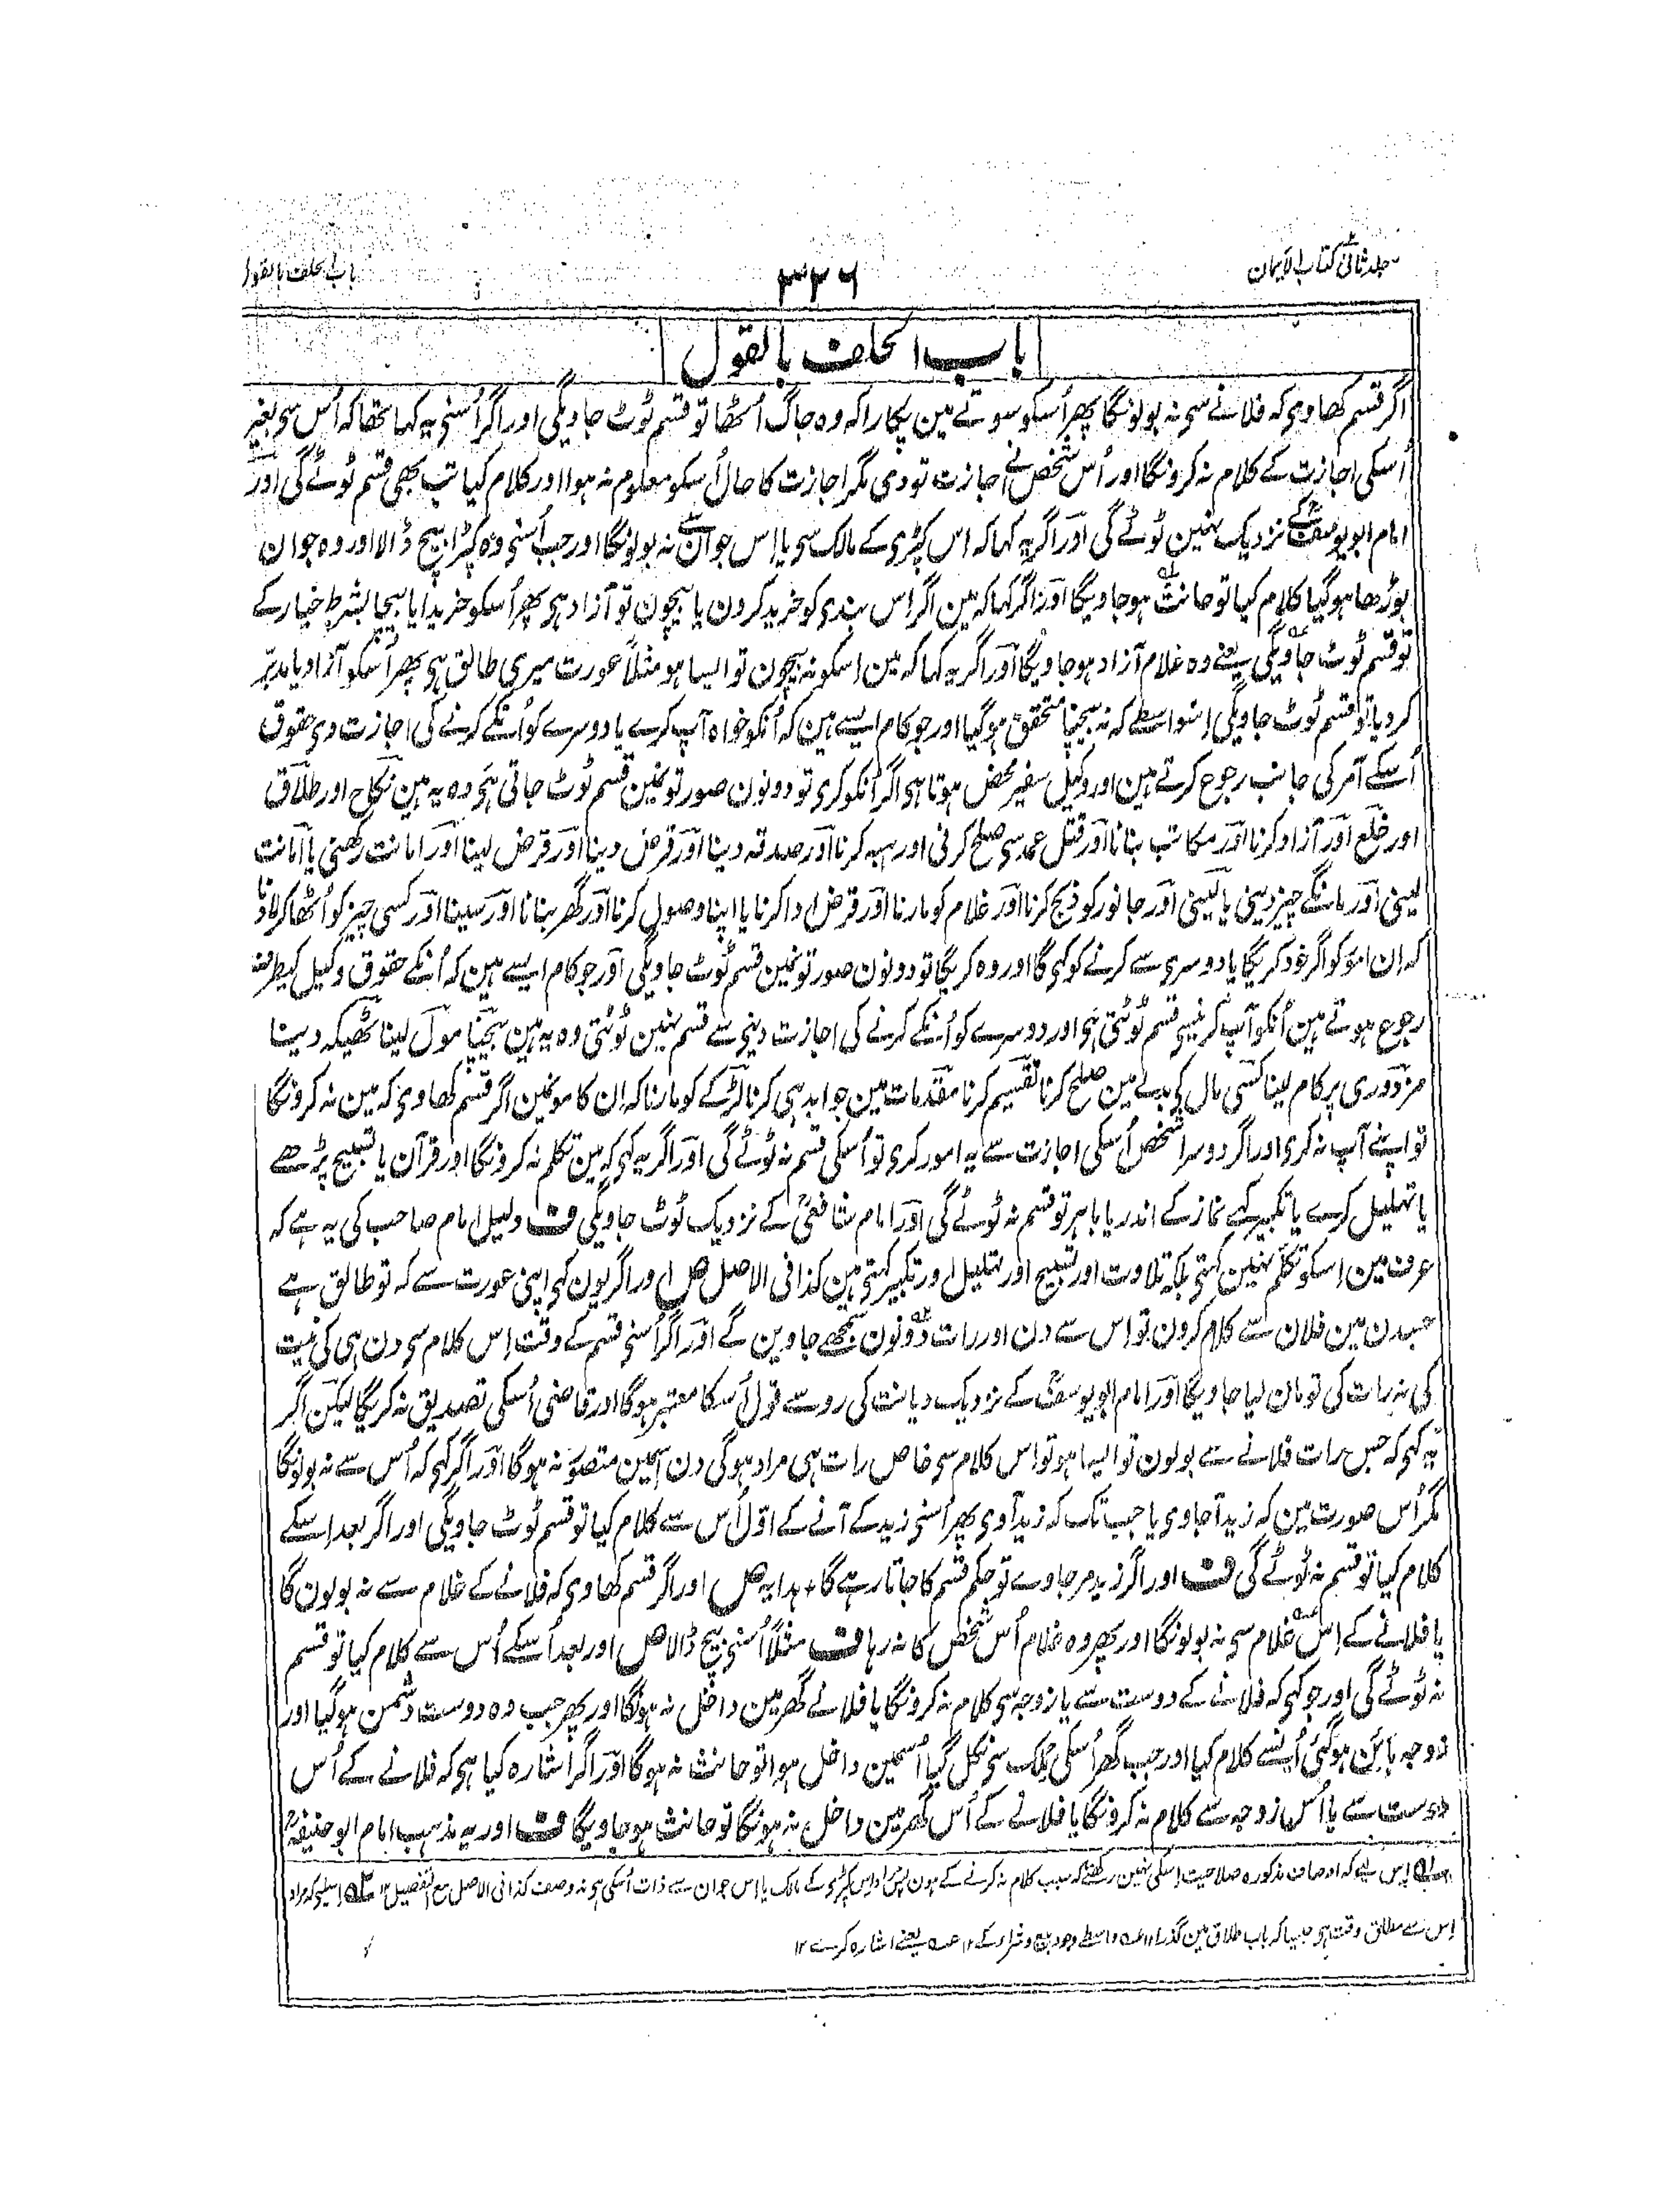 جلد ثانی کتاب الایمان
۳۲۶
باب الحلف بالقول
باب الحلف بالقول
اگر قسم کھاوی کہ فلانے سی نہ بولونگا پھر اُسکو سوتے مین پکارا کہ وہ جاگ اُٹھا تو قسم ٹوٹ جاویگی اور اگر اُسنی یہ کہا تھا کہ اُس سی بغیر
اُسکی اجازت کے کلام نہ کرونگا اور اُس شخص نے اجازت تو دی مگر اجازت کا حال اُسکو معلوم نہ ہوا اور کلام کیا تب بھی قسم ٹوٹے گی اور
امام ابو یوسفؒ کے نزدیک نہین ٹوٹے گی اور اگر یہ کہا کہ اس کپڑی کے مالک سی یا اِس جوان سے نہ بولونگا اور جب اُسنی وہ کپڑا بیچ ڈالا اور وہ جوان
بوڑھا ہوگیا کلام کیا تو حانث ہو جاویگا اور اگر کہا کہ مین اگر اِس بندی کو خرید کرون یا بیچون تو آزاد ہی پھر اُسکو خریدا یا بیچا بشرط خیار کے
تو قسم ٹوٹ جاویگی یعنے وہ غلام آزاد ہو جاویگا اور اگر یہ کہا کہ مین اسکو نہ بیچون تو ایسا ہو مثلاً عورت میری طالق ہی پھر اُسکو آزاد یا مدبّر
کر دیا تو قسم ٹوٹ جاویگی اسواسطے کہ نہ بیچنا متحقق ہوگیا اور جو کام ایسے ہین کہ اُنکو خواہ آپ کرے یا دوسرے کو اُنکے کرنے کی اجازت دی حقوق
اُسکے آمر کی جانب رجوع کرتے ہین اور وکیل سفیر محض ہوتا ہی اگر اُنکو کری تو دونون صورتونمین قسم ٹوٹ جاتی ہی وہ یہ ہین نکاح اور طلاق
اور خلع اور آزاد کرنا اور مکاتب بنانا اور قتل عمد سی صلح کرنی اور ہبہ کرنا اور صدقہ دینا اور قرض دینا اور قرض لینا اور امانت رکھنی یا امانت
لینی اور مانگے چیز دینی یا لینی اور جانور کو ذبح کرنا اور غلام کو مارنا اور قرض ادا کرنا یا اپنا وصول کرنا اور گھر بنانا اور سینا اور کسی چیز کو اُٹھا کر لادنا
کہ اِن امور کو اگر خود کریگا یا دوسری سے کرنے کو کہی گا اور وہ کریگا تو دونون صورتونمین قسم ٹوٹ جاویگی اور جو کام ایسے ہین کہ اُنکے حقوق وکیل کیطرف
رجوع ہوتے ہین اُنکو آپ کرنیسی قسم ٹوٹتی ہی اور دوسرے کو اُنکے کرنے کی اجازت دینی سے قسم نہین ٹوٹتی وہ یہ ہین بیچنا مول لینا ٹھیکہ دینا
مزدوری پر کام لینا کسی مال کی بدلے مین صلح کرنا تقسیم کرنا مقدمات مین جوابدہی کرنا لڑکے کو مارنا کہ اِن کامونمین اگر قسم کھاوی کہ مین نہ کرونگا
تو اپنے آپ نہ کری اور اگر دوسرا شخص اُسکی اجازت سے یہ امور کری تو اُسکی قسم نہ ٹوٹے گی اور اگر یہ کہی کہ مین تکلم نہ کرونگا اور قرآن یا تسبیح پڑھے
یا تہلیل کرے یا تکبیر کہے نماز کے اندر یا باہر تو قسم نہ ٹوٹے گی اور امام شافعیؒ کے نزدیک ٹوٹ جاویگی ف دلیل امام صاحب کی یہ ہے کہ
عرف مین اِسکو تکلم نہین کہتی بلکہ تلاوت اور تسبیح اور تہلیل اور تکبیر کہتی ہین کذا فی الاصل ص اور اگر یون کہی اپنی عورت سے کہ تو طالق ہے
جسدن مین فلان سے کلام کرون تو اِس سے دن اور رات دونون سمجھے جاوین گے اور اگر اُسنی قسم کے وقت اِس کلام سی دن ہی کی نیت
کی نہ رات کی تو مان لیا جاویگا اور امام ابو یوسفؒ کے نزدیک دیانت کی رو سے قول اُسکا معتبر ہوگا اور قاضی اُسکی تصدیق نہ کریگا لیکن اگر
یہ کہی کہ جس رات فلانے سے بولون تو ایسا ہو تو اس کلام سی خاص رات ہی مراد ہوگی دن اسمین متصور نہ ہوگا اور اگر کہی کہ اُس سے نہ بولونگا
مگر اُس صورت مین کہ زید آجاوی یا جب تک کہ زید آوی پھر اُسنی زید کے آنے کے اوّل اُس سے کلام کیا تو قسم ٹوٹ جاویگی اور اگر بعد اِسکے
کلام کیا تو قسم نہ ٹوٹے گی ف اور اگر زید مر جاوے تو حکم قسم کا جاتا رہے گا ہدایہ ص اور اگر قسم کھاوی کہ فلانے کے غلام سے نہ بولون گا
یا فلانے کے اِس غلام سی نہ بولونگا اور پھر وہ غلام اُس شخص کا نہ رہا ف مثلاً اُسنی بیچ ڈالا ص اور بعد اُسکے اُس سے کلام کیا تو قسم
نہ ٹوٹے گی اور جو کہی کہ فلانے کے دوست سے یا زوجہ سی کلام نہ کرونگا یا فلانے گھر مین داخل نہ ہونگا اور پھر جب وہ دوست دشمن ہوگیا اور
زوجہ بائن ہوگئی اُنسے کلام کیا اور جب گھر اُسکی ملک سی نکل گیا اُسمین داخل ہوا تو حانث نہ ہوگا اور اگر اشارہ کیا ہی کہ فلانے کے اُس
دوست سے یا اُس زوجہ سے کلام نہ کرونگا یا فلانے کے اُس گھر مین داخل نہ ہونگا تو حانث ہو جاویگا ف اور یہ مذہب امام ابو حنیفہؒ
اِس لیے کہ اوصاف مذکورہ صلاحیت اِسکی نہین رکھتے کہ سبب کلام نہ کرنے کے ہون پس مراد اِس کپڑی کے مالک یا اس جوان سے ذات اُسکی ہی نہ وصف کذا فی الاصل مع التفصیل ۱۲ اِسلیے کہ مراد
اِس سے مطلق وقت ہی جیسا کہ باب طلاق مین گذرا ۱۲ عہ واسطے وجود بیع و شراء کے ۱۲ عہ یعنے اشارہ کرے ۱۲